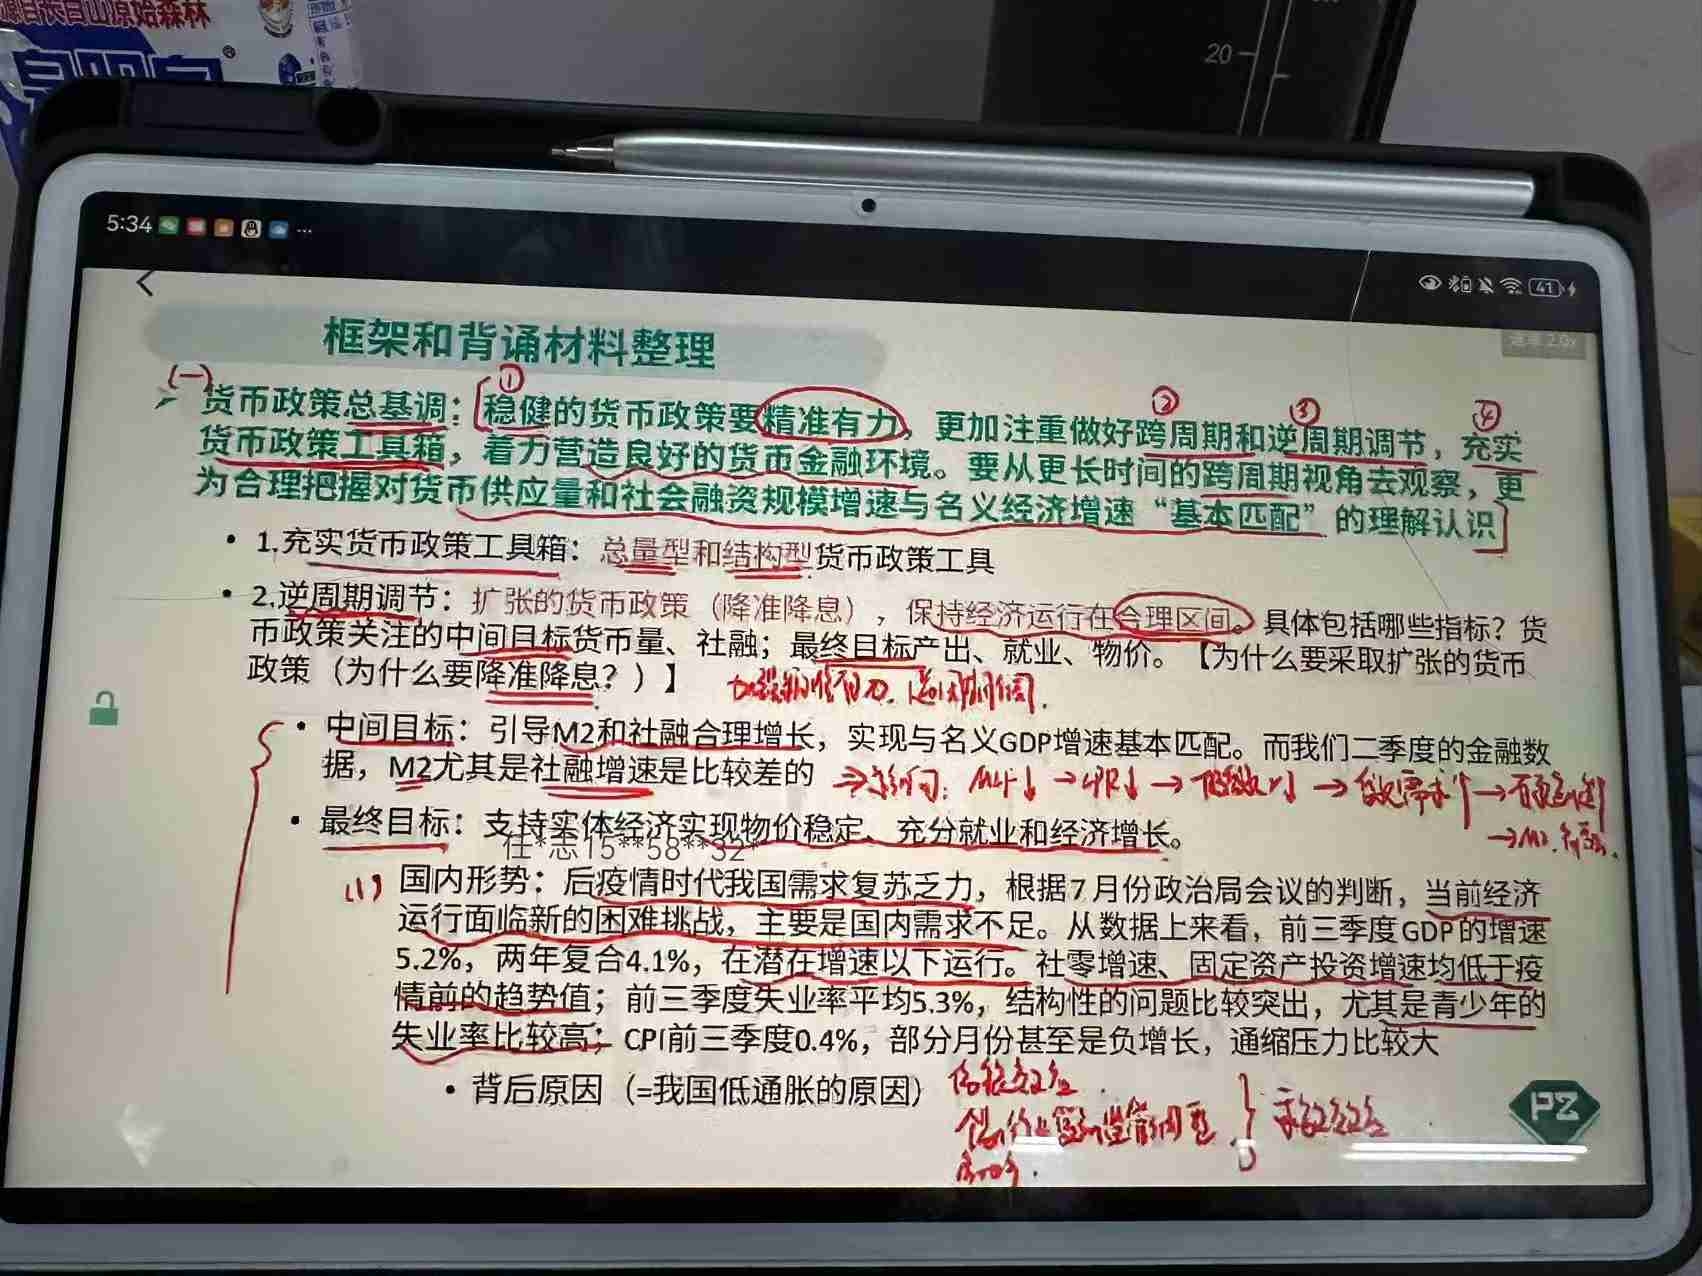 源自长白山原始森林
20
5:34
41
速率 2.0x
框架和背诵材料整理
(一) ① ② ③ ④
货币政策总基调：稳健的货币政策要精准有力，更加注重做好跨周期和逆周期调节，充实
货币政策工具箱，着力营造良好的货币金融环境。要从更长时间的跨周期视角去观察，更
为合理把握对货币供应量和社会融资规模增速与名义经济增速“基本匹配”的理解认识
• 1.充实货币政策工具箱：总量型和结构型货币政策工具
• 2.逆周期调节：扩张的货币政策（降准降息），保持经济运行在合理区间。具体包括哪些指标？货
币政策关注的中间目标货币量、社融；最终目标产出、就业、物价。【为什么要采取扩张的货币
政策（为什么要降准降息？）】
• 中间目标：引导M2和社融合理增长，实现与名义GDP增速基本匹配。而我们二季度的金融数
据，M2尤其是社融增速是比较差的
MLF↓ → LPR↓ →
• 最终目标：支持实体经济实现物价稳定、充分就业和经济增长。
任*志15**58**32*
→M2
(1) 国内形势：后疫情时代我国需求复苏乏力，根据7月份政治局会议的判断，当前经济
运行面临新的困难挑战，主要是国内需求不足。从数据上来看，前三季度GDP的增速
5.2%，两年复合4.1%，在潜在增速以下运行。社零增速、固定资产投资增速均低于疫
情前的趋势值；前三季度失业率平均5.3%，结构性的问题比较突出，尤其是青少年的
失业率比较高；CPI前三季度0.4%，部分月份甚至是负增长，通缩压力比较大
• 背后原因（=我国低通胀的原因）
PZ